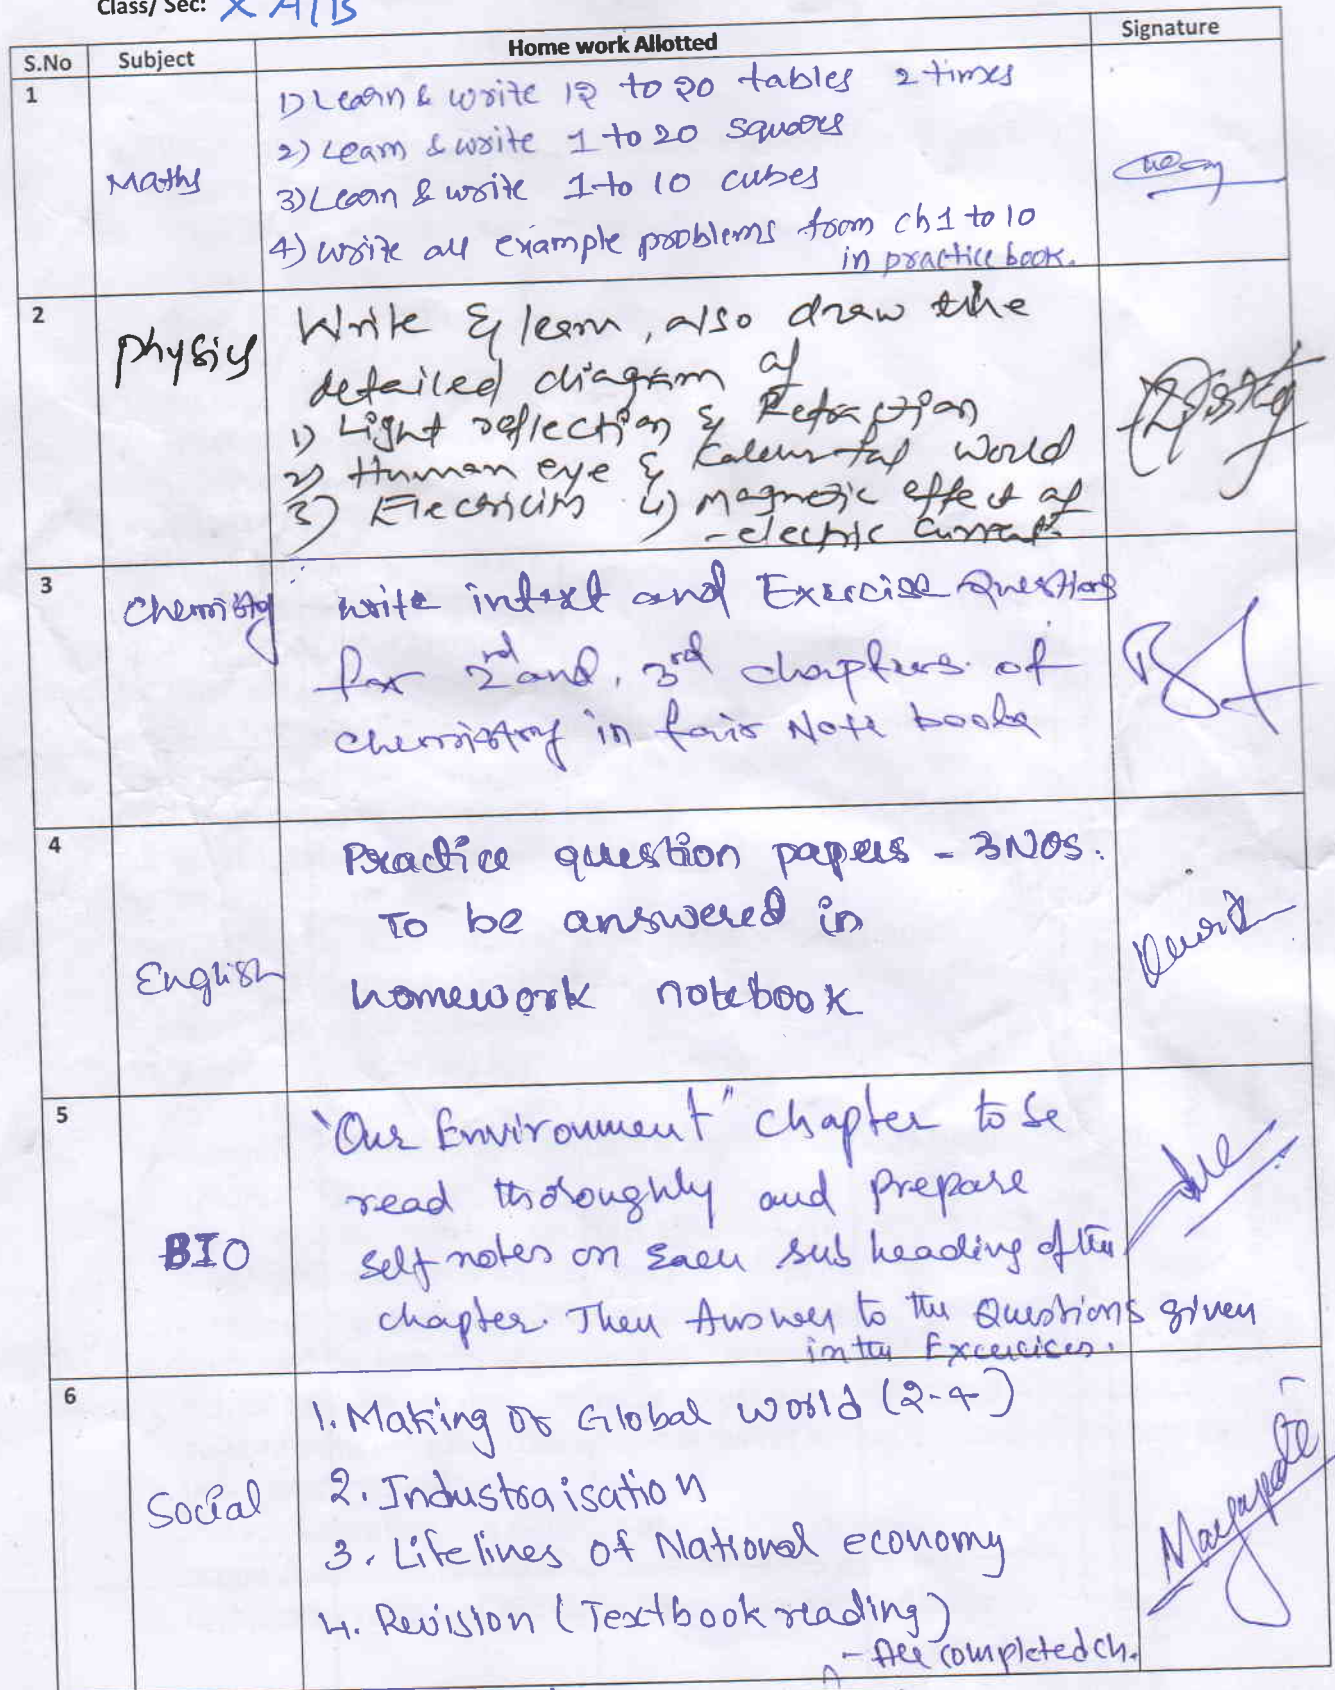 Class/ Sec: X A/B
S.No Subject Home work Allotted Signature
1 Maths
1) Learn & write 12 to 20 tables 2 times
2) Learn & write 1 to 20 squares
3) Learn & write 1 to 10 cubes
4) write all example problems from ch 1 to 10
in practice book.
2 Physics
Write & learn, also draw the
detailed diagram of
1) Light reflection & Refraction
2) Human eye & Colourful World
3) Electricity 4) Magnetic effect of
- electric current
3 Chemistry
write intext and Exercise Questions
for 2nd and, 3rd chapters of
chemistry in fair Note books
4 English
Practice question papers - 3NOS.
To be answered in
homework notebook
5 BIO
"Our Environment" Chapter to be
read thoroughly and prepare
self notes on Each sub heading of the
chapter. Then Answer to the Questions given
in the Excercises.
6 Social
1. Making of Global world (2-4)
2. Industraisation
3. Lifelines of National economy
4. Revision (Textbook reading)
- All completed ch.